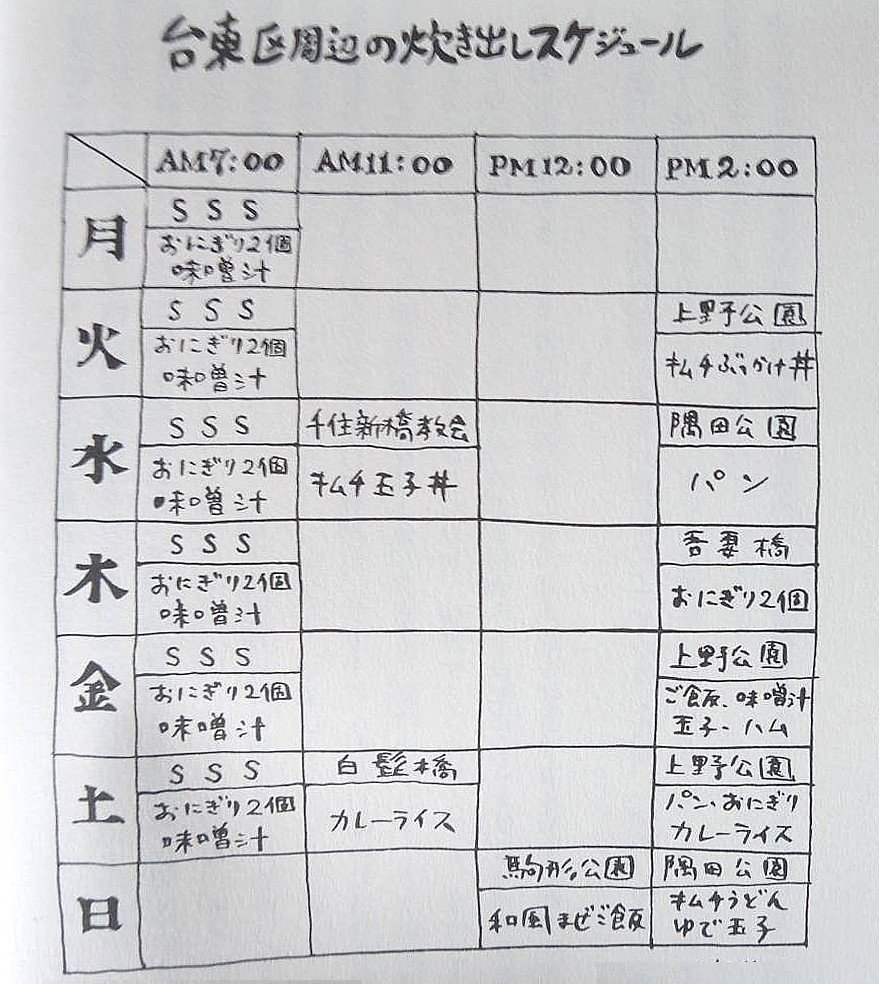 台東区周辺の炊き出しスケジュール
AM7:00 AM11:00 PM12:00 PM2:00
月
SSS
おにぎり2個
味噌汁
火
SSS 上野公園
おにぎり2個
味噌汁
キムチぶっかけ丼
水
SSS 千住新橋教会 隅田公園
おにぎり2個
味噌汁
キムチ玉子丼
パン
木
SSS 吾妻橋
おにぎり2個
味噌汁
おにぎり2個
金
SSS 上野公園
おにぎり2個
味噌汁
ご飯、味噌汁
玉子・ハム
土
SSS 白髭橋 上野公園
おにぎり2個
味噌汁
カレーライス
パン、おにぎり
カレーライス
日
駒形公園 隅田公園
和風まぜご飯
キムチうどん
ゆで玉子